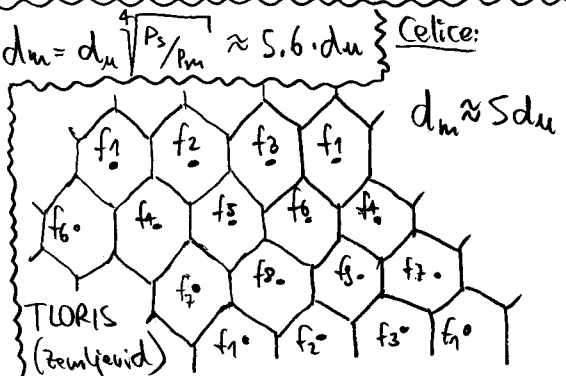 dₘ = dᵤ ⁴√(Pₛ/Pₘ) ≈ 5.6·dᵤ
Celice:
dₘ ≈ 5dᵤ
f1 f2 f3 f1
f6 f4 f5 f6 f4
f7 f8 f9 f7
f1 f2 f3 f1
TLORIS
(zemljevid)